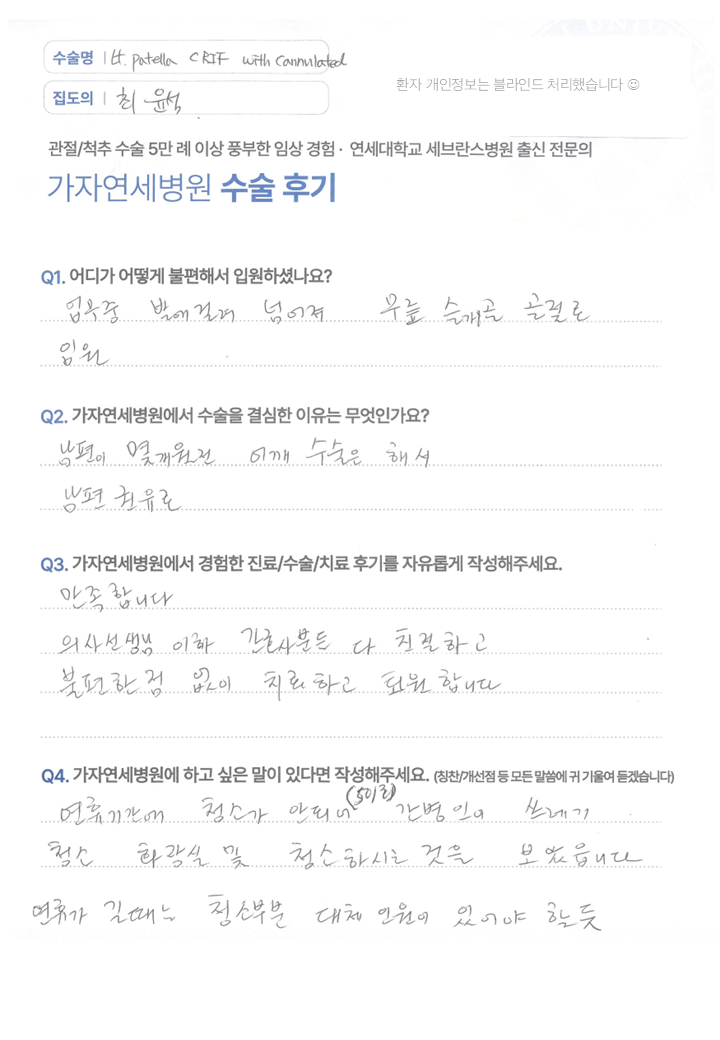 수술명 | Lt. patella CRIF with Cannulated
환자 개인정보는 블라인드 처리했습니다 ☺
집도의 | 최윤석
관절/척추 수술 5만 례 이상 풍부한 임상 경험 · 연세대학교 세브란스병원 출신 전문의
가자연세병원 수술 후기
Q1. 어디가 어떻게 불편해서 입원하셨나요?
업무중 발에걸려 넘어져 무릎 슬개골 골절로
입원
Q2. 가자연세병원에서 수술을 결심한 이유는 무엇인가요?
남편이 몇개월전 어깨 수술은 해서
남편 권유로
Q3. 가자연세병원에서 경험한 진료/수술/치료 후기를 자유롭게 작성해주세요.
만족합니다
의사선생님 이하 간호사분들 다 친절하고
불편한점 없이 치료하고 퇴원합니다
Q4. 가자연세병원에 하고 싶은 말이 있다면 작성해주세요. (칭찬/개선점 등 모든 말씀에 귀 기울여 듣겠습니다)
연휴기간에 청소가 안되니 (501호) 간병인이 쓰레기
청소 화장실 및 청소하시는 것을 보았습니다
연휴가 길때는 청소부분 대체 인원이 있어야 할듯